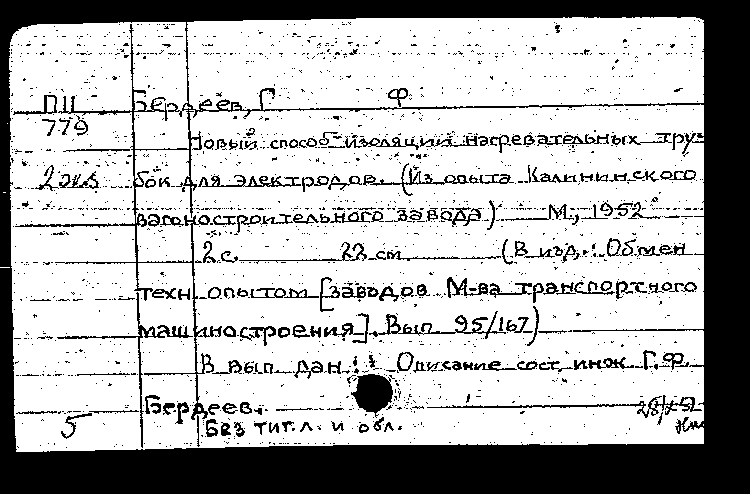 П11 Бердеев, Г Ф
779
Новый способ изоляции нагревательных тру-
2 экз бок для электродов. (Из опыта Калининского
вагоностроительного завода) М., 1952
2 с. 22 см (В изд.: Обмен
техн опытом [заводов М-ва транспортного
машиностроения]. Вып 95/167)
В вып. дан.: Описание сост инж Г.Ф.
Бердеев.
5 Без тит.л. и обл.